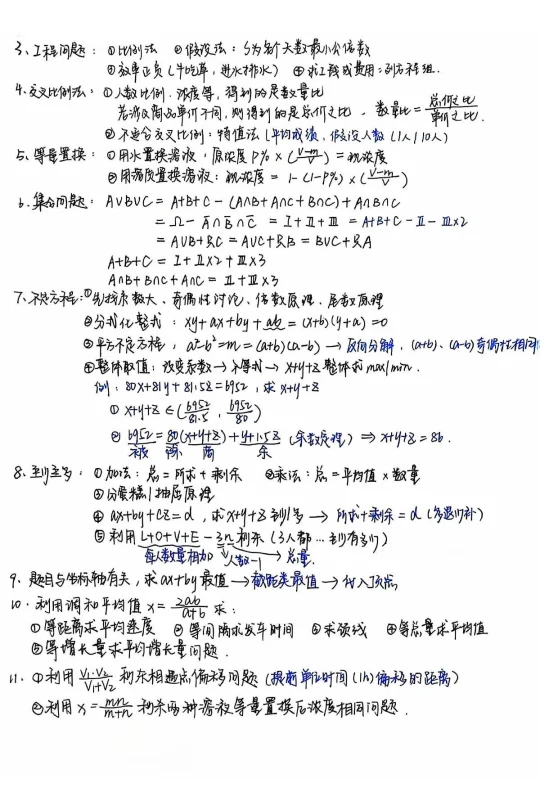 3、工程问题：①比例法 ②假设法：S为各个天数最小公倍数
③效率正负(牛吃草，进水排水) ④求工钱或费用：列方程组.
4、交叉比例法：①人数比例、浓度等，得到的是数量比
若涉及商品单价不同，则得到的是总价之比，数量比=总价之比/单价之比.
②不适合交叉比例：特值法(平均成绩，假设人数(1人/10人)
5、等量置换：①用水置换溶液：原浓度P%×(V-m/V)=现浓度
②用溶质置换溶液：现浓度=1-(1-P%)×(V-m/V)
6、集合问题：A∪B∪C = A+B+C-(A∩B+A∩C+B∩C)+A∩B∩C
= Ω-A̅∩B̅∩C̅ = Ⅰ+Ⅱ+Ⅲ = A+B+C-Ⅱ-Ⅲ×2
= A∪B+只C = A∪C+只B = B∪C+只A
A+B+C = Ⅰ+Ⅱ×2+Ⅲ×3
A∩B+B∩C+A∩C = Ⅱ+Ⅲ×3
7、不定方程：①先找系数大、奇偶性讨论、倍数原理、尾数原理
②分式化整式：xy+ax+by+ab=(x+b)(y+a)=0
③平方不定方程，a²-b²=m=(a+b)(a-b)→反向分解，(a+b)、(a-b)奇偶性相同
④整体取值：改变系数→不等式→x+y+z整体求max/min.
例：80x+81y+81.5z=6952，求x+y+z
①x+y+z∈(6952/81.5，6952/80)
②6952=80(x+y+z)+y+1.5z(余数定理)⇒x+y+z=86.
被 除 商 余
8、至少至多：①加法：总=所求+剩余 ②乘法：总=平均值×数量
③分蛋糕/抽屉原理
④ax+by+cz=d，求x+y+z至少/多→所求+剩余=d(多退少补)
⑤利用L+O+V+E-3n利余(3人都…至少有多少)
每人数量相加 人数-1 总量.
9、题目与坐标轴有关，求ax+by最值→截距类最值→代入顶点
10、利用调和平均值x=2ab/a+b求：
①等距离求平均速度 ②等间隔求发车时间 ③求颈线 ④等总量求平均值
⑤等增长量求平均增长量问题.
11、①利用V₁·V₂/V₁+V₂利余相遇点偏移问题(根据单位时间(1h)偏移的距离)
②利用x=mn/m+n利余两种溶液等量置换后浓度相同问题.